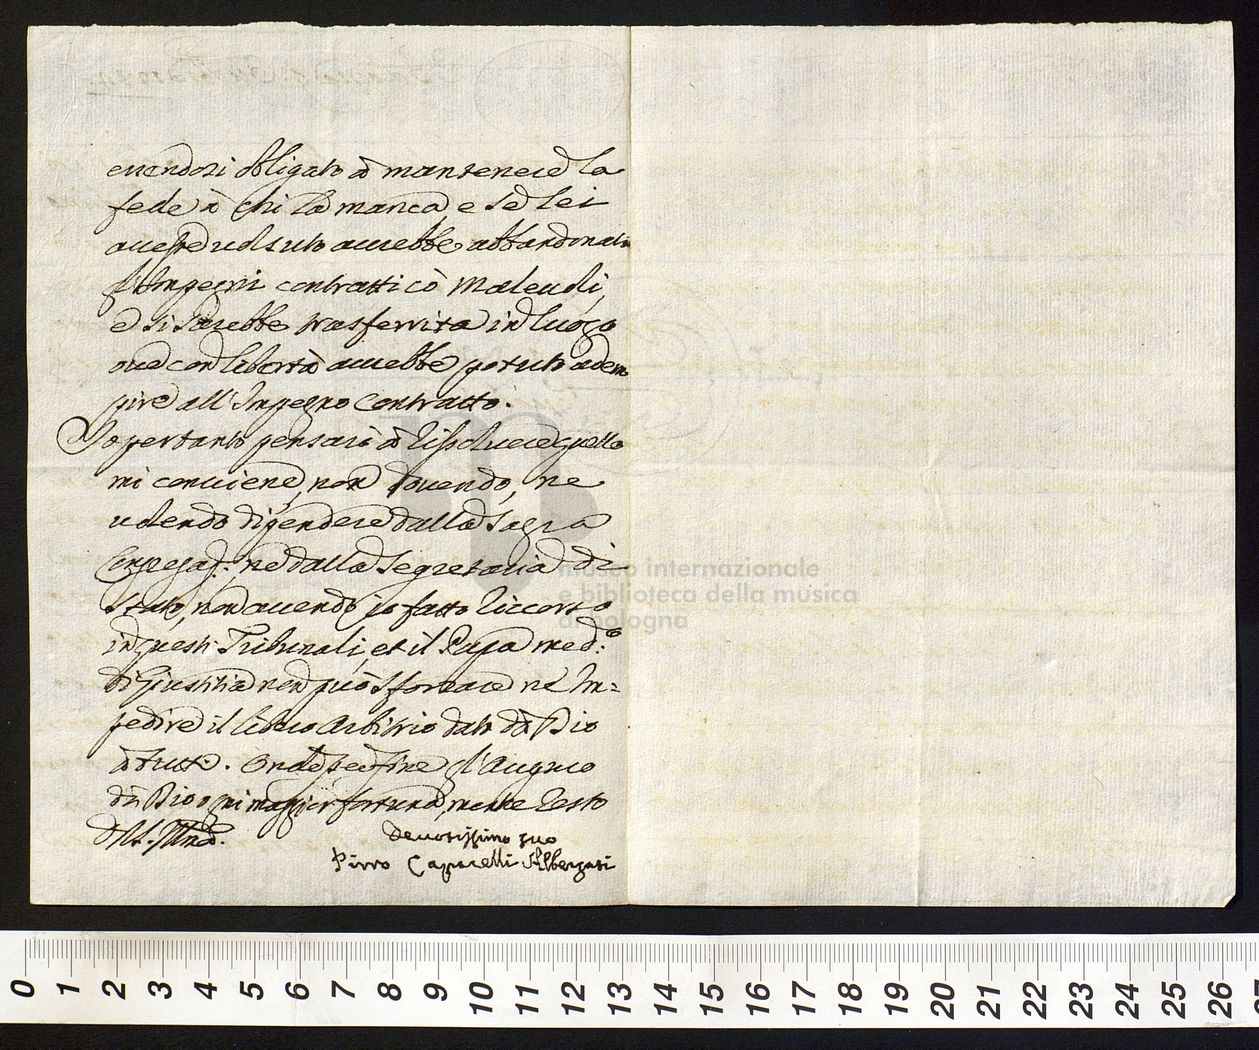 essendosi obligato à mantenere la
fede à chi la manca, e se lei
avesse voluto averebbe abbandonato
gl'Impegni contratti cò Malevoli,
e si sarebbe trasferita in luogo
ove con libertà averebbe potuto adem
pire all'Impegno Contratto.
Io pertanto pensarò à rissolvere quello
mi conviene, non dovendo, ne
volendo dipendere dalla Sagra
Congegaz: ne dalla Segretaria di
Stato, non avendo io fatto riccorso
in questi Tribunali, et il Papa med:º
di Giustitia non può sforzare ne Im=
pedire il libero Arbitrio dato dà Dio
à tutti. Onde per fine gl'Auguro
dà Dio ogni maggior fortuna, mentre resto
di V.S. Ill.ma
devotissimo suo
Pirro Capacelli Albergati
museo internazionale
e biblioteca della musica
di bologna
0 1 2 3 4 5 6 7 8 9 10 11 12 13 14 15 16 17 18 19 20 21 22 23 24 25 26 27